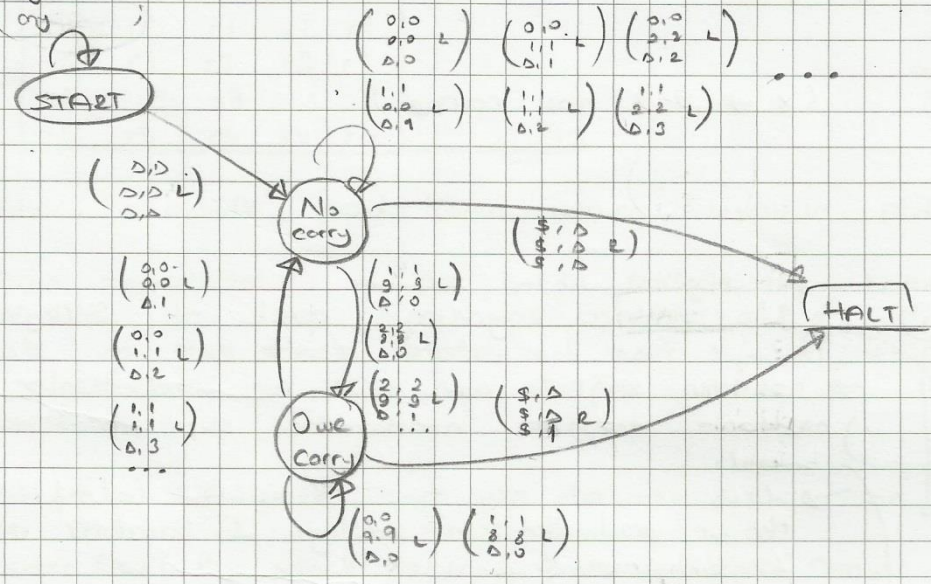 ;
START
(0,0 / 0,0 / Δ,0 L)
(0,0 / 1,1 / Δ,1 L)
(0,0 / 2,2 / Δ,2 L)
...
(1,1 / 0,0 / Δ,1 L)
(1,1 / 1,1 / Δ,2 L)
(1,1 / 2,2 / Δ,3 L)
(Δ,Δ / Δ,Δ / Δ,Δ L)
No
carry
($,Δ / $,Δ / $,Δ R)
HALT
(0,0 / 0,0 / Δ,1 L)
(0,0 / 1,1 / Δ,2 L)
(1,1 / 1,1 / Δ,3 L)
...
(1,1 / 9,9 / Δ,0 L)
(2,2 / 8,8 / Δ,0 L)
(2,2 / 9,9 / Δ,1 L)
...
Owe
carry
($,Δ / $,Δ / $,1 R)
(0,0 / 9,9 / Δ,0 L)
(1,1 / 8,8 / Δ,0 L)